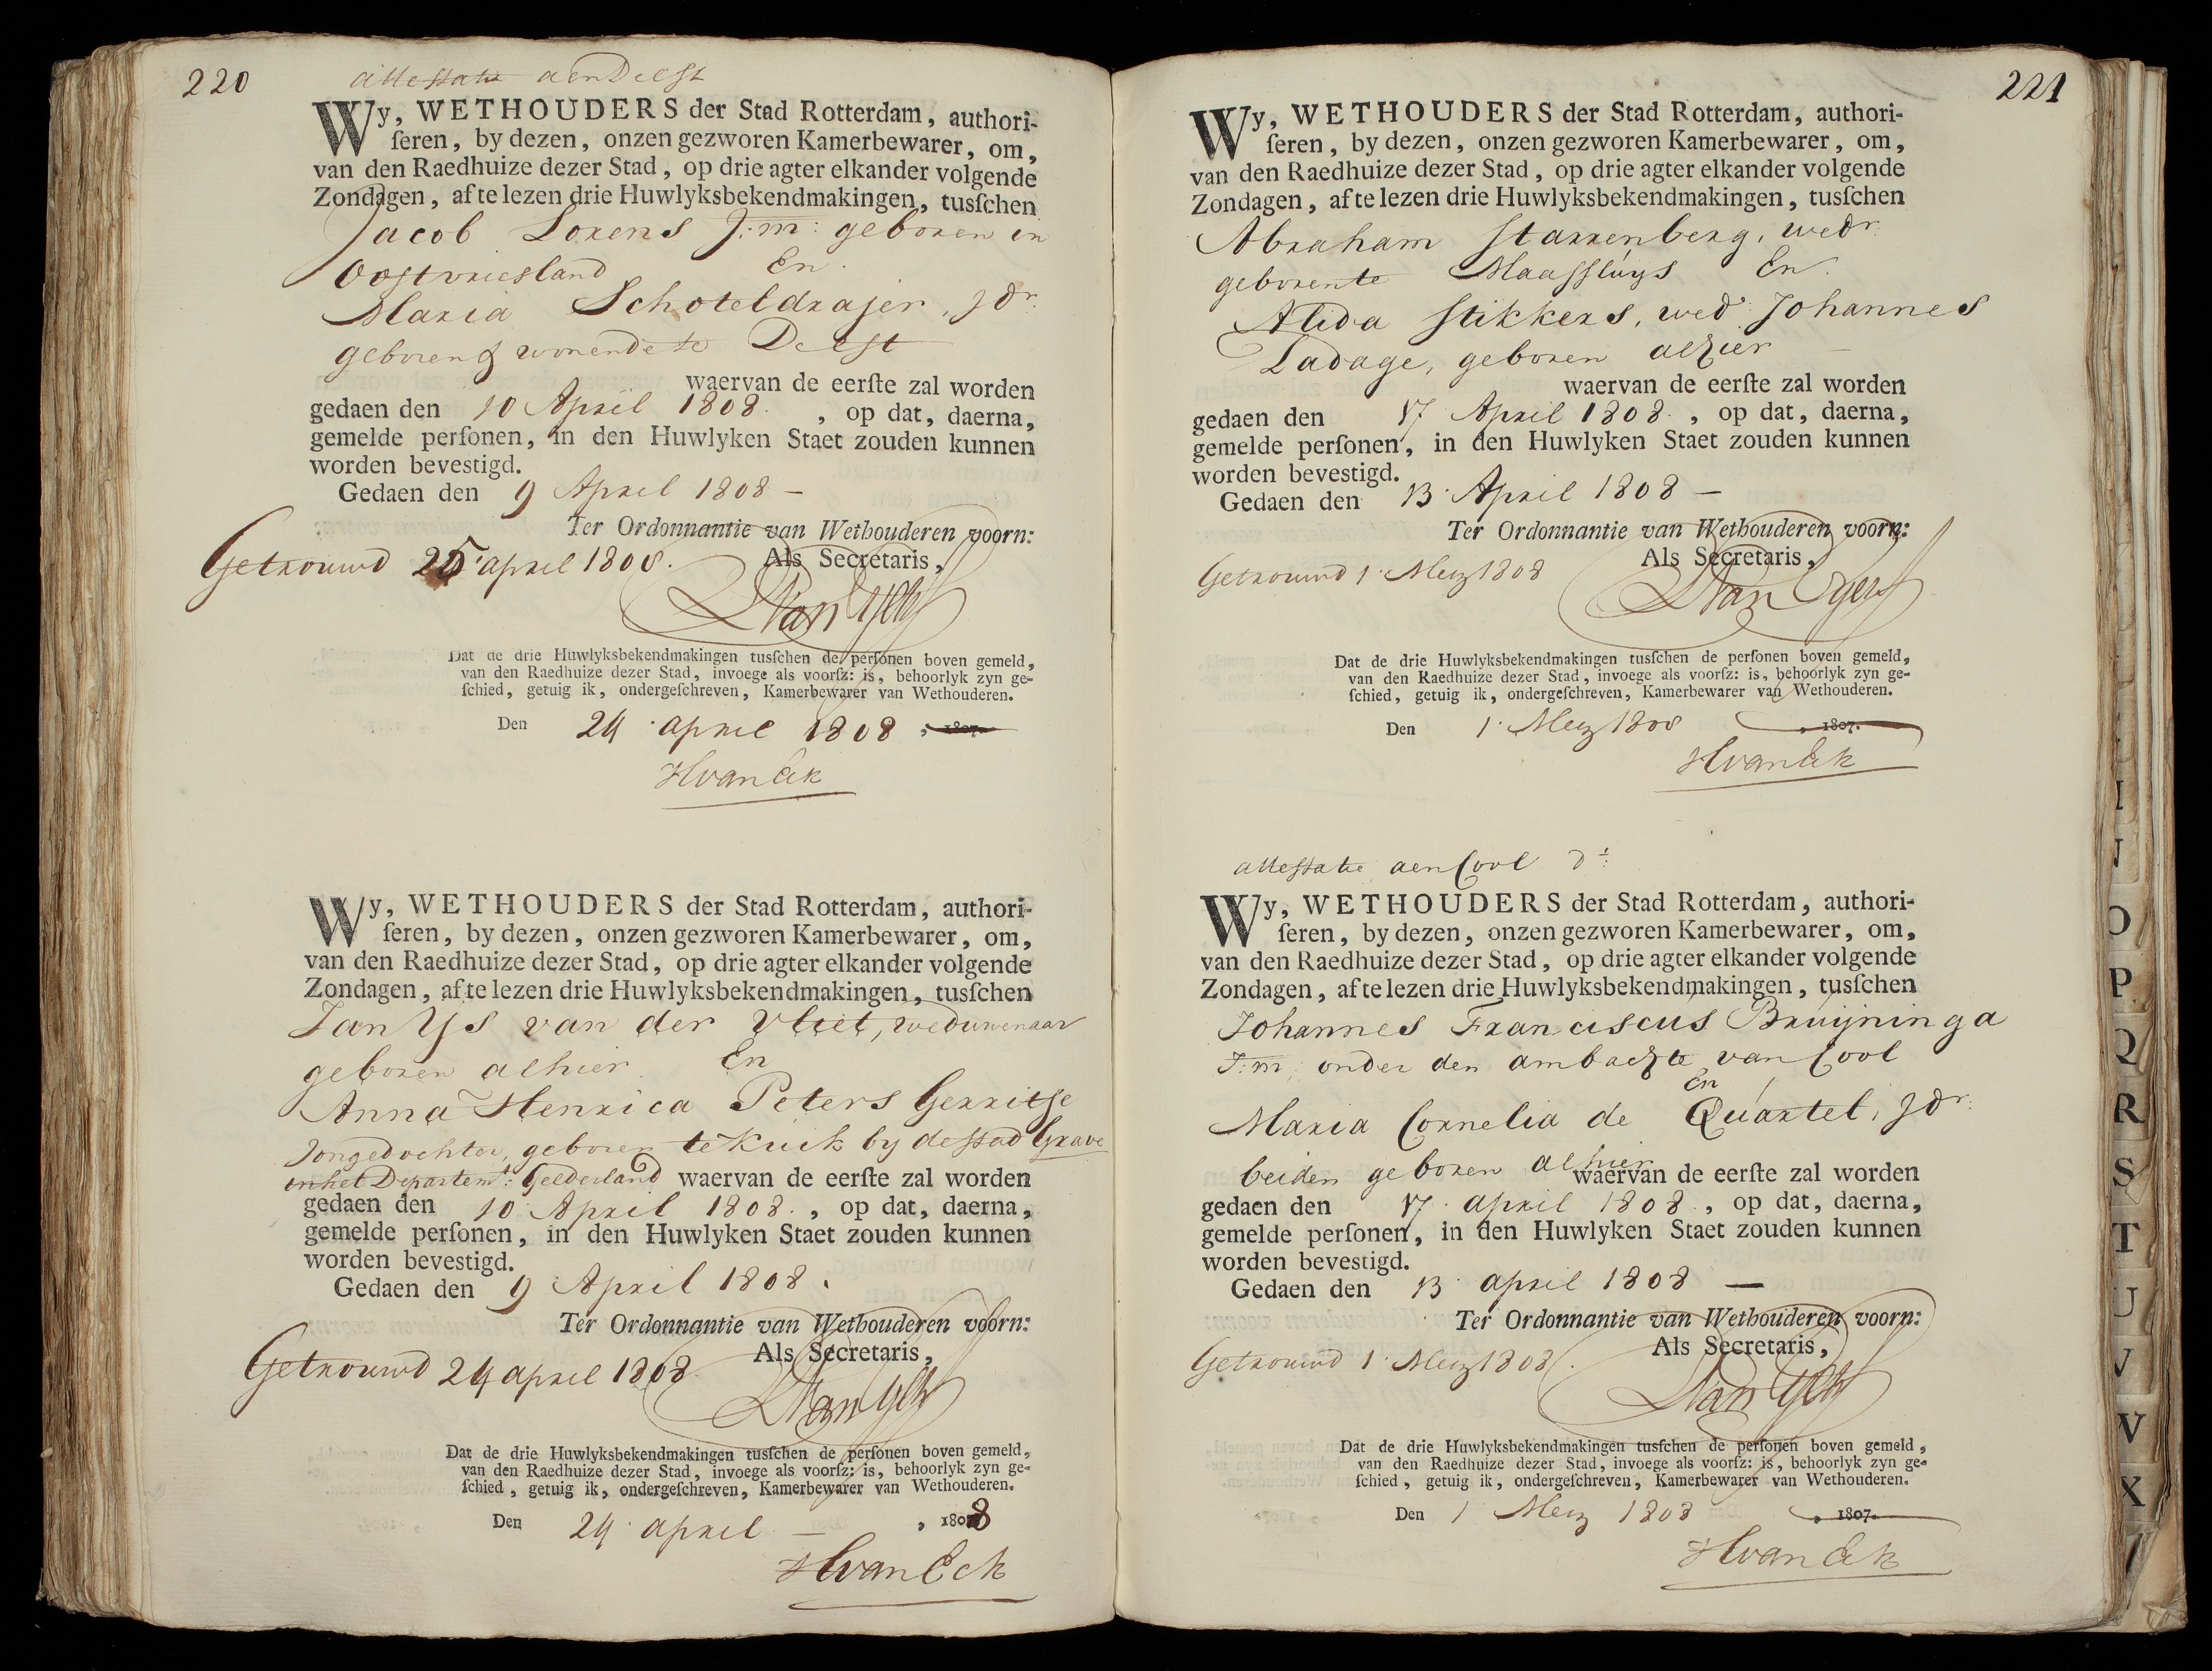 220
attestatie aen Deest
Wy, WETHOUDERS der Stad Rotterdam, authori-
ſeren, by dezen, onzen gezworen Kamerbewarer, om,
van den Raedhuize dezer Stad, op drie agter elkander volgende
Zondagen, af te lezen drie Huwlyksbekendmakingen, tusſchen
Jacob Lorens J:m: geboren in
Oostvriesland En
Maria Schoteldrajer, Jdr.
geboren & wonende te Deest
waervan de eerſte zal worden
gedaen den 10 April 1808. , op dat, daerna,
gemelde perſonen, in den Huwlyken Staet zouden kunnen
worden bevestigd.
Gedaen den 9 April 1808 —
Ter Ordonnantie van Wethouderen voorn:
Als Secretaris,
Getrouwd 25 april 1808.
Dat de drie Huwlyksbekendmakingen tusſchen de perſonen boven gemeld,
van den Raedhuize dezer Stad, invoege als voorſz: is, behoorlyk zyn ge-
ſchied, getuig ik, ondergeſchreven, Kamerbewarer van Wethouderen.
Den 24 april 1808 , 1807.
HvanEck
Wy, WETHOUDERS der Stad Rotterdam, authori-
ſeren, by dezen, onzen gezworen Kamerbewarer, om,
van den Raedhuize dezer Stad, op drie agter elkander volgende
Zondagen, af te lezen drie Huwlyksbekendmakingen, tusſchen
Jan Ys van der Vliet, weduwenaar
geboren alhier En
Anna Henrica Peters Gerritse
Jongedochter, geboren te Kuik by de stad Grave
in het Departemt: Gelderland waervan de eerſte zal worden
gedaen den 10 April 1808. , op dat, daerna,
gemelde perſonen, in den Huwlyken Staet zouden kunnen
worden bevestigd.
Gedaen den 9 April 1808.
Ter Ordonnantie van Wethouderen voorn:
Als Secretaris,
Getrouwd 24 april 1808
Dat de drie Huwlyksbekendmakingen tusſchen de perſonen boven gemeld,
van den Raedhuize dezer Stad, invoege als voorſz: is, behoorlyk zyn ge-
ſchied, getuig ik, ondergeſchreven, Kamerbewarer van Wethouderen.
Den 24 april — , 1808
HvanEck
221
Wy, WETHOUDERS der Stad Rotterdam, authori-
ſeren, by dezen, onzen gezworen Kamerbewarer, om,
van den Raedhuize dezer Stad, op drie agter elkander volgende
Zondagen, af te lezen drie Huwlyksbekendmakingen, tusſchen
Abraham Starrenberg, wedr.
geboren te Maassluys En
Alida Stikkers, wed: Johannes
Ladage, geboren alhier —
waervan de eerſte zal worden
gedaen den 17 April 1808. , op dat, daerna,
gemelde perſonen, in den Huwlyken Staet zouden kunnen
worden bevestigd.
Gedaen den 13 April 1808 —
Ter Ordonnantie van Wethouderen voorn:
Als Secretaris,
Getrouwd 1 Mey 1808
Dat de drie Huwlyksbekendmakingen tusſchen de perſonen boven gemeld,
van den Raedhuize dezer Stad, invoege als voorſz: is, behoorlyk zyn ge-
ſchied, getuig ik, ondergeſchreven, Kamerbewarer van Wethouderen.
Den 1 Mey 1808 , 1807.
HvanEck
attestatie aen Cool dt:
Wy, WETHOUDERS der Stad Rotterdam, authori-
ſeren, by dezen, onzen gezworen Kamerbewarer, om,
van den Raedhuize dezer Stad, op drie agter elkander volgende
Zondagen, af te lezen drie Huwlyksbekendmakingen, tusſchen
Johannes Franciscus Bruijninga
J:m: onder den ambachte van Cool
En
Maria Cornelia de Quartel, Jdr:
beiden geboren alhier waervan de eerſte zal worden
gedaen den 17 april 1808 , op dat, daerna,
gemelde perſonen, in den Huwlyken Staet zouden kunnen
worden bevestigd.
Gedaen den 13 april 1808 —
Ter Ordonnantie van Wethouderen voorn:
Als Secretaris,
Getrouwd 1 Mey 1808.
Dat de drie Huwlyksbekendmakingen tusſchen de perſonen boven gemeld,
van den Raedhuize dezer Stad, invoege als voorſz: is, behoorlyk zyn ge-
ſchied, getuig ik, ondergeſchreven, Kamerbewarer van Wethouderen.
Den 1 Mey 1808 , 1807.
HvanEck
O
P
Q
R
S
T
U
V
W
X